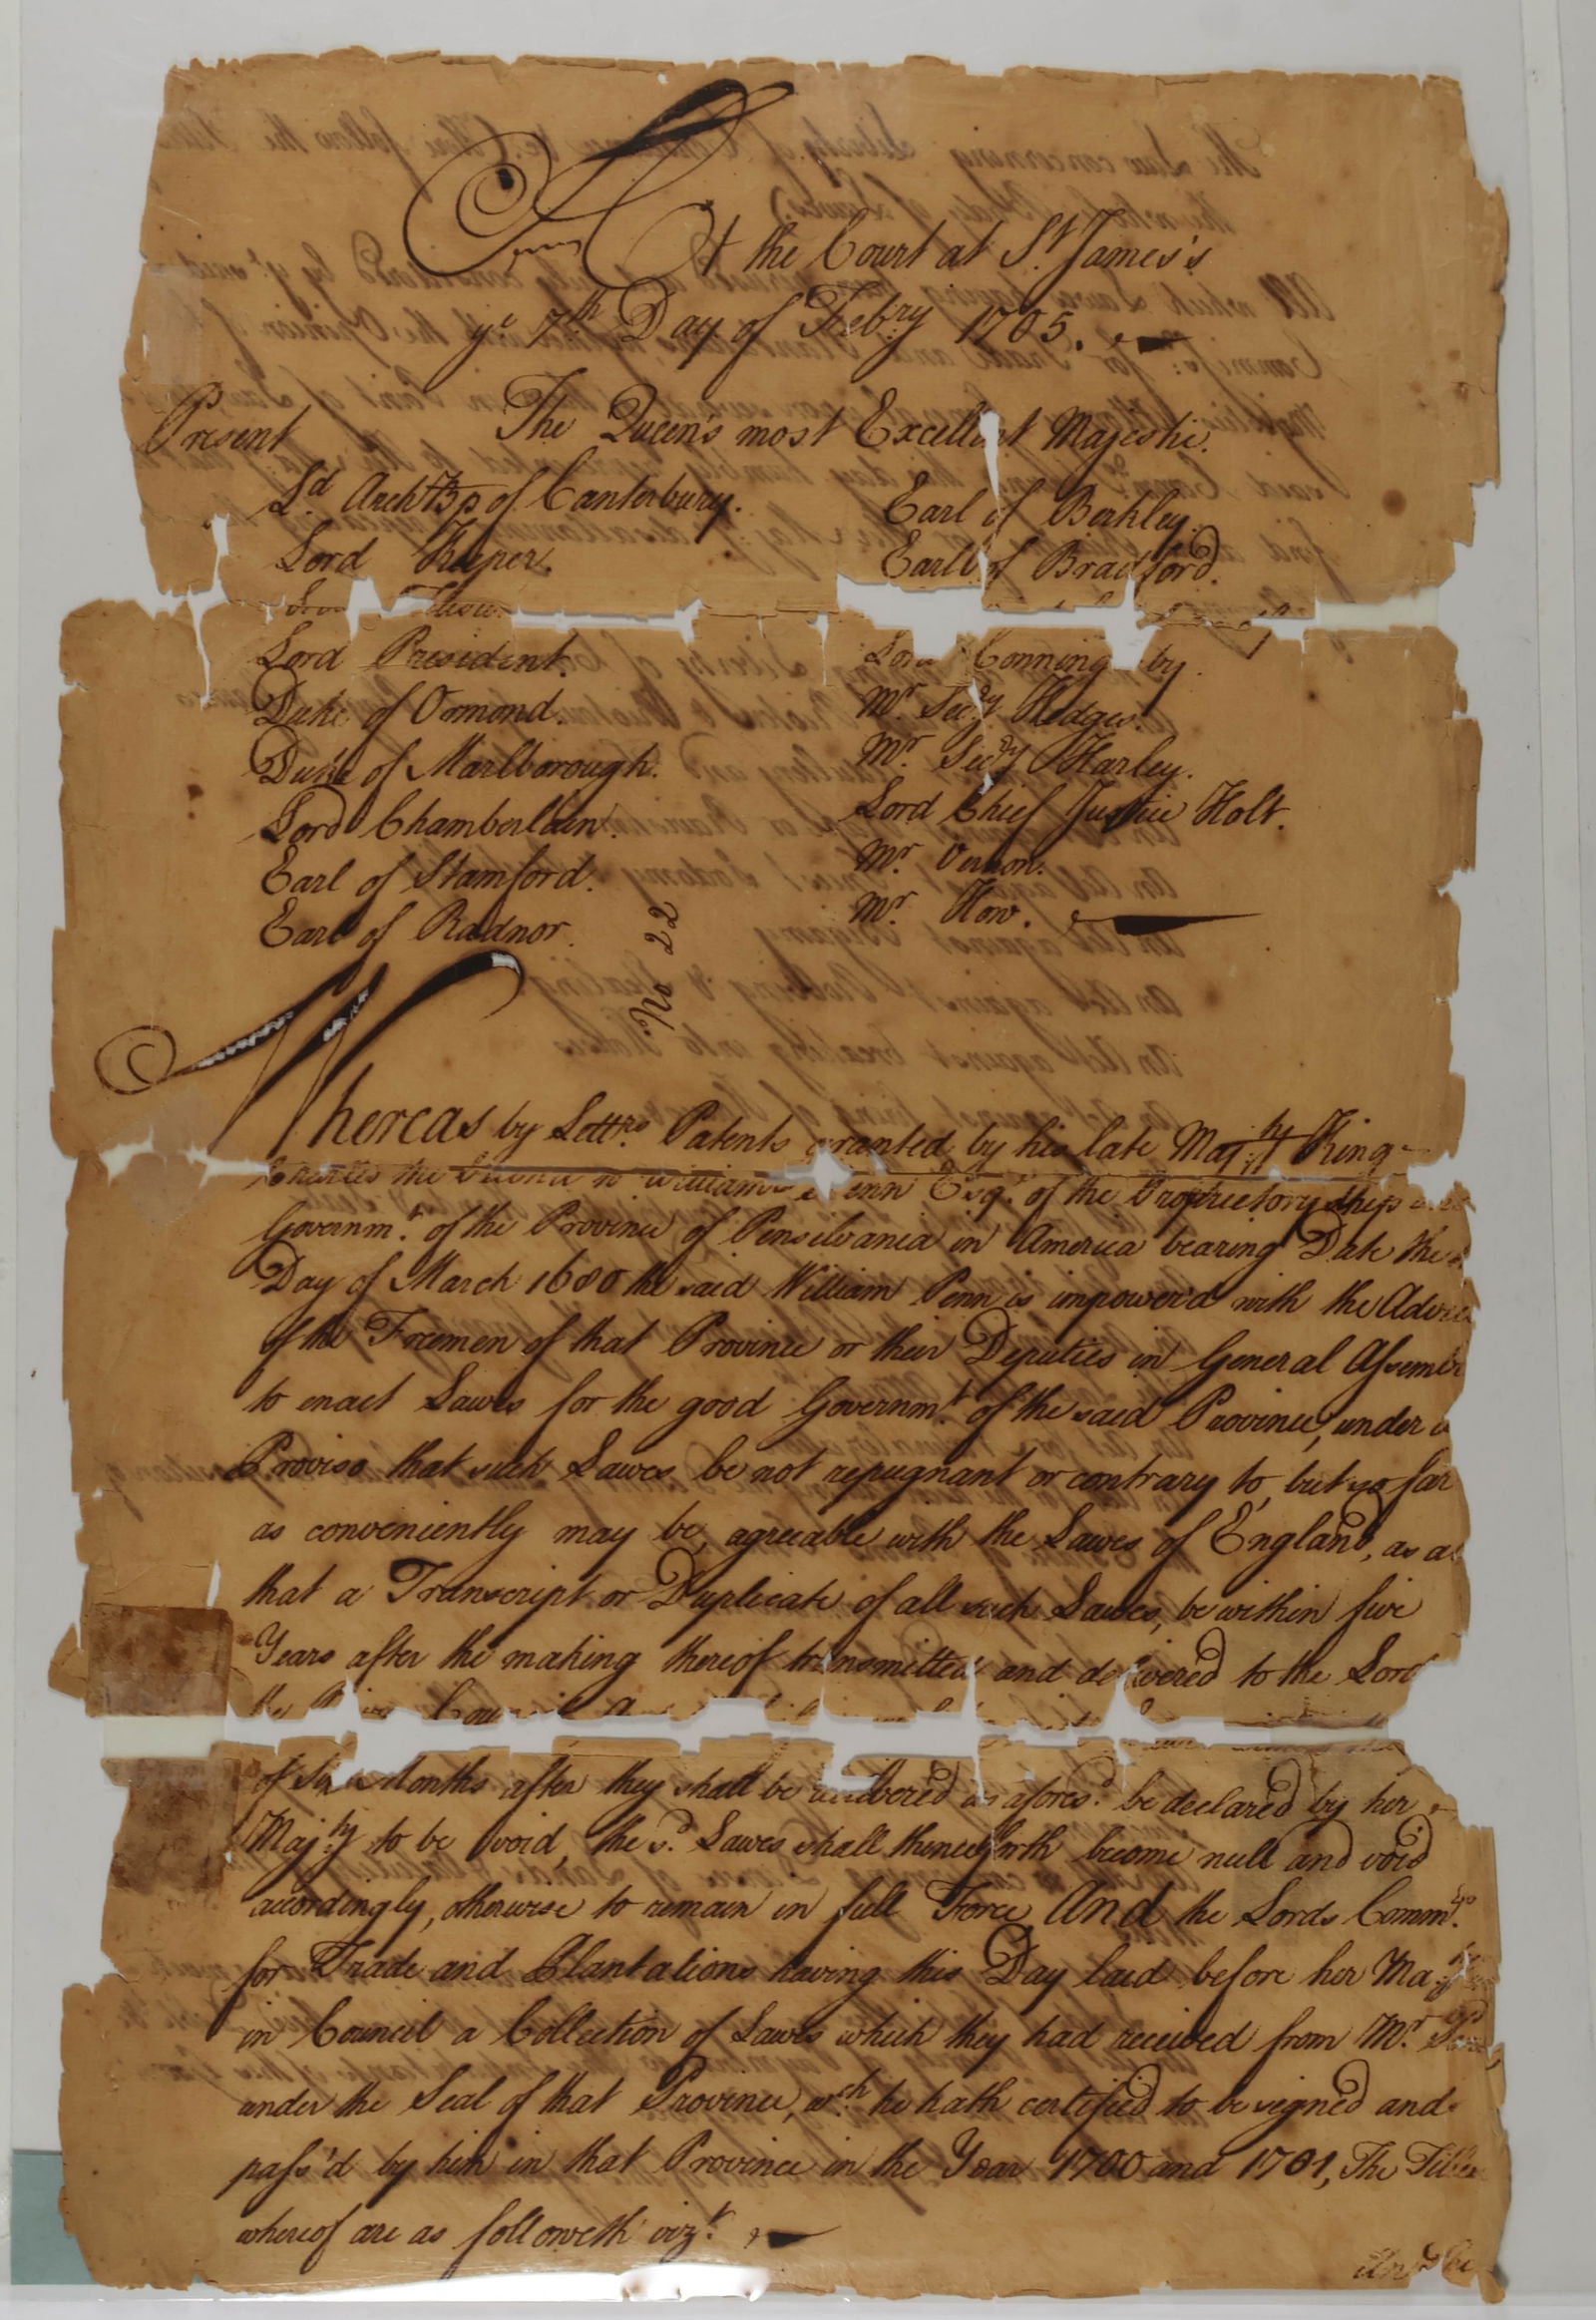 At the Court at St. James's
ye 7th Day of Febry 1705.
Present The Queen's most Excellent Majestie.
Ld Arch Bp of Canterbury.
Lord Keeper.
Lord President.
Duke of Ormond.
Duke of Marlborough.
Lord Chamberlain.
Earl of Stamford.
Earl of Radnor.
Earl of Berkley.
Earl of Bradford.
Lord Conningsby.
Mr. Secry Hedges.
Mr. Secry Harley.
Lord Chief Justice Holt.
Mr. Vernon.
Mr. How.
No 22
Whereas by Lettrs. Patents granted by his late Maj:ty King
Charles the Second to William Penn Esqr. of the Proprietory ships
Governmt. of the Province of Pensilvania in America bearing Date the
Day of March 1680 the said William Penn is impowerd with the Advice
of the Freemen of that Province or their Deputies in General Assem
to enact Lawes for the good Governmt. of the said Province, under a
Proviso that such Lawes be not repugnant or contrary to, but so far
as conveniently may be, agreeable with the Lawes of England, as a
that a Transcript or Duplicate of all such Lawes, be within five
Years after the making thereof transmitted and delivered to the Lord
the
of Six Months after they shall be delivered as afores.d be declared by her
Maj:ty to be void, the s.d Lawes shall thenceforth become null and void
accordingly, otherwise to remain in full Force, And the Lords Commrs.
for Trade and Plantations having this Day laid before her Maj:ty
in Council a Collection of Lawes which they had received from Mr. Penn,
under the Seal of that Province, wch. he hath certified to be signed and
pass'd by him in that Province in the Year 1700 and 1701, The Titles
whereof are as followeth vizt.